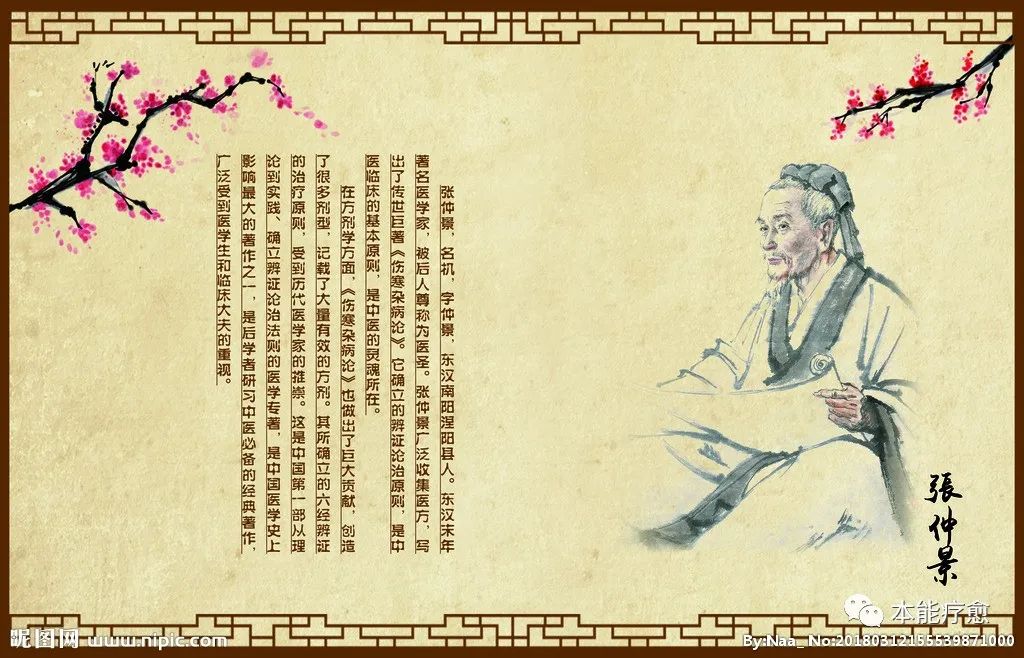 张仲景，名机，字仲景，东汉南阳涅阳县人。东汉末年
著名医学家，被后人尊称为医圣。张仲景广泛收集医方，写
出了传世巨著《伤寒杂病论》。它确立的辨证论治原则，是中
医临床的基本原则，是中医的灵魂所在。
在方剂学方面，《伤寒杂病论》也做出了巨大贡献，创造
了很多剂型，记载了大量有效的方剂。其所确立的六经辨证
的治疗原则，受到历代医学家的推崇。这是中国第一部从理
论到实践、确立辨证论治法则的医学专著，是中国医学史上
影响最大的著作之一，是后学者研习中医必备的经典著作，
广泛受到医学生和临床大夫的重视。
張仲景
本能疗愈
昵图网 www.nipic.com
By:Naa_ No:20180312155539871000